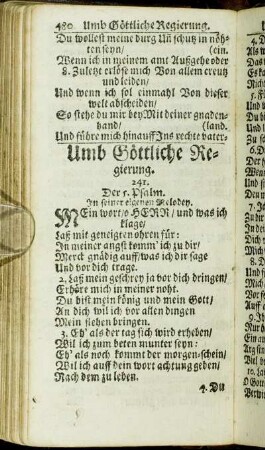 480 Umb Göttliche Regierung.
Du wollest meine burg Uñ schutz in nöh-
ten seyn/ (ein.
Wenn ich in meinem amt Aufgehe oder
8. Zuletzt erlöse mich Von allem creutz
und leiden/
Und wenn ich sol einmahl Von dieser
welt abscheiden/
So stehe du mir bey Mit deiner gnaden-
hand/ (land.
Und führe mich hinauff Ins rechte vater-
Umb Göttliche Re-
gierung.
241.
Der 5. Psalm.
In seiner eigenen Melodey.
MEin wort/o HERR/ und was ich
klage/
Laß mit geneigten ohren für:
In meiner angst komm' ich zu dir/
Merck gnädig auff/was ich dir sage
Und vor dich trage.
2. Laß mein geschrey ja vor dich dringen/
Erhöre mich in meiner noht.
Du bist mein könig und mein Gott/
An dich wil ich vor allen dingen
Mein flehen bringen.
3. Eh' als der tag sich wird erheben/
Wil ich zum beten munter seyn:
Eh' als noch kommt der morgen-schein/
Wil ich auff dein wort achtung geben/
Nach dem zu leben.
4. Du